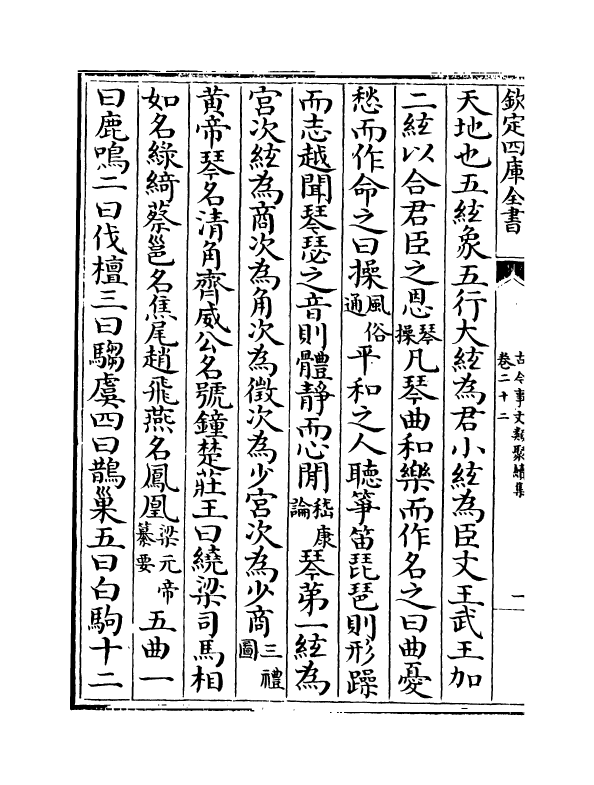 欽定四庫全書
古今事文類聚續集
卷二十二
一
天地也五絃象五行大絃為君小絃為臣文王武王加
二絃以合君臣之恩琴操凡琴曲和樂而作名之曰曲憂
愁而作命之曰操風俗通平和之人聽箏笛琵琶則形躁
而志越聞琴瑟之音則體靜而心閒嵇康論琴第一絃為
宫次絃為商次為角次為徵次為少宫次為少商三禮圖
黄帝琴名清角齊威公名號鐘楚莊王曰繞梁司馬相
如名綠綺蔡邕名焦尾趙飛燕名鳳凰梁元帝纂要五曲一
曰鹿鳴二曰伐檀三曰騶虞四曰鵲巢五曰白駒十二